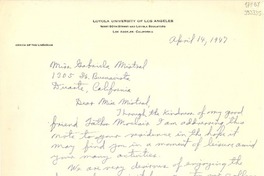 LOYOLA UNIVERSITY OF LOS ANGELES
LOS ANGELES, CALIFORNIA
OFFICE OF THE LIBRARIAN
April 14, 1947
Miss Gabriela Mistral
1305 Buenavista
Duarte, California
Dear Miss Mistral,
Through the kindness of my good
friend Father I am addressing this
note to your residence in the hope it
may find you in a moment of leisure amid
your many activities.
We are very desirous of enjoying the